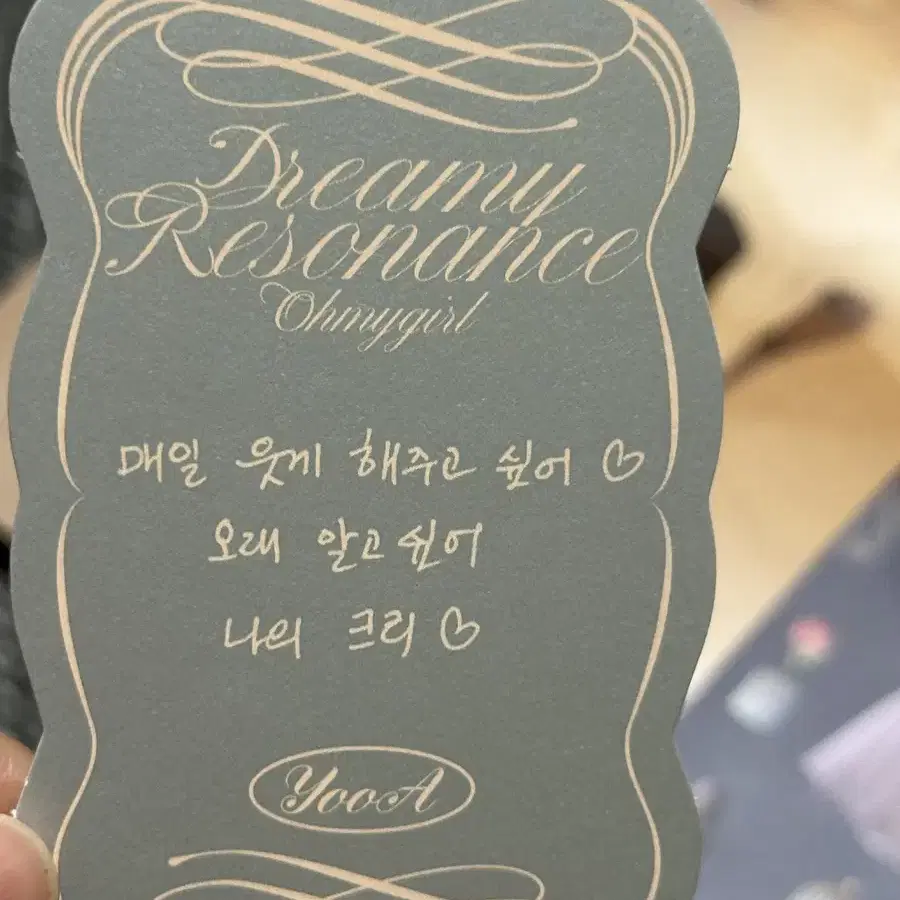 Dreamy
Resonance
Ohmygirl
매일 웃게 해주고 싶어 ♡
오래 알고싶어
나의 크리 ♡
YooA